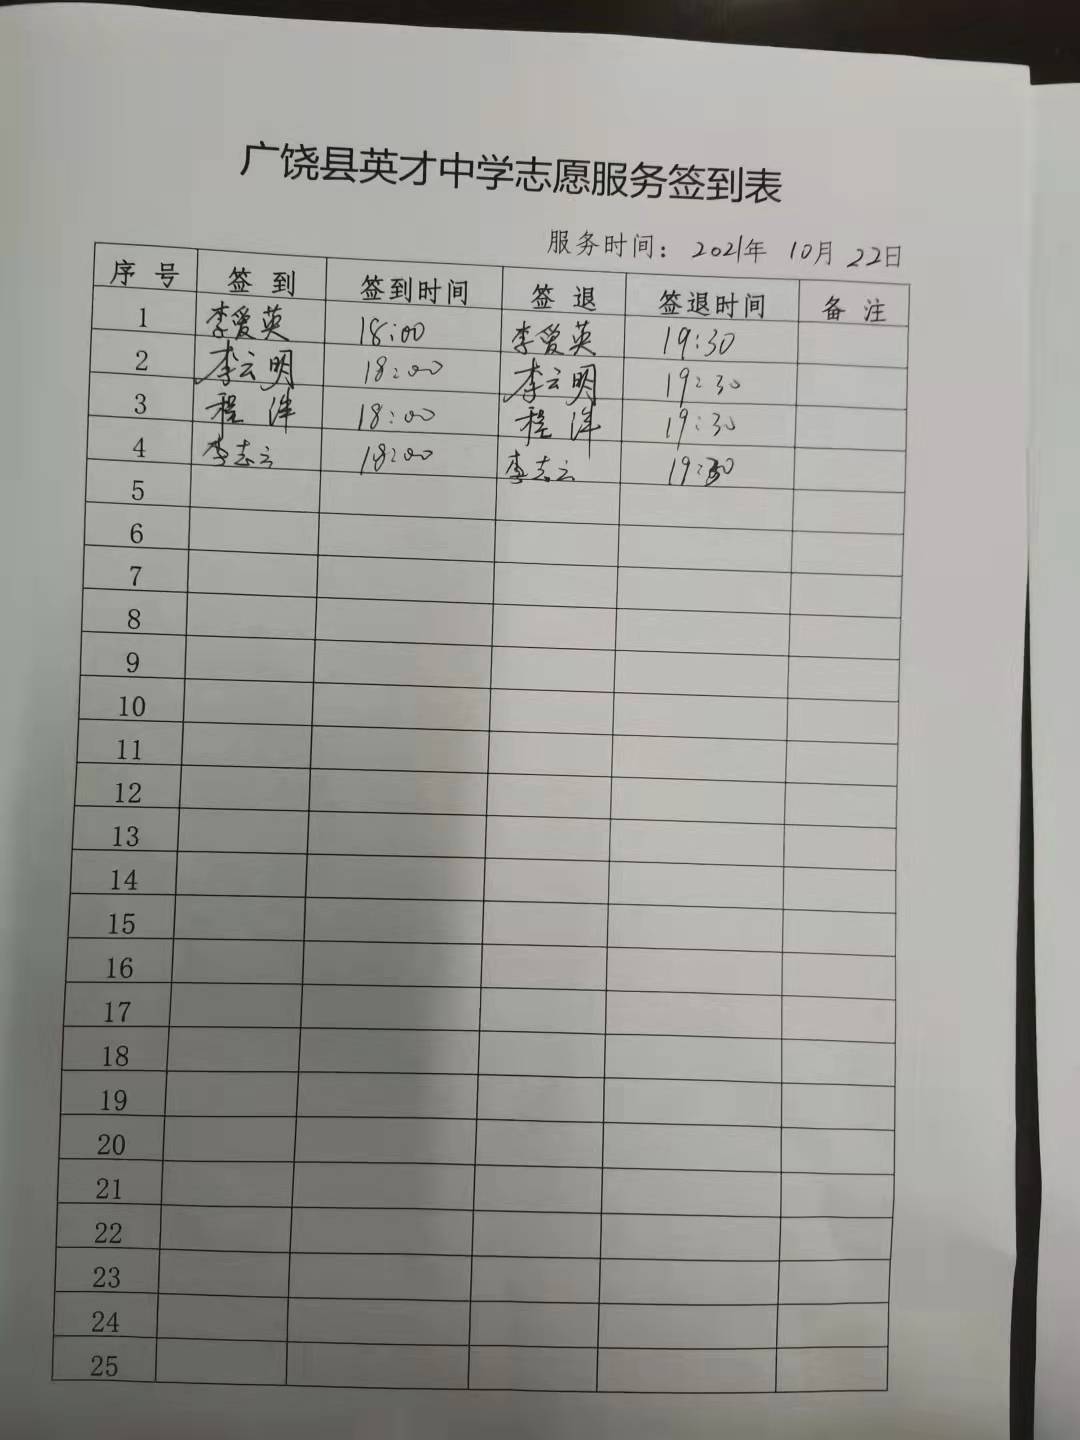 广饶县英才中学志愿服务签到表
服务时间：2021年 10月 22日
序 号 签 到 签到时间 签 退 签退时间 备 注
1 李爱英 18:00 李爱英 19:30
2 李云明 18:00 李云明 19:30
3 程洋 18:00 程洋 19:30
4 李志云 18:00 李志云 19:30
5
6
7
8
9
10
11
12
13
14
15
16
17
18
19
20
21
22
23
24
25